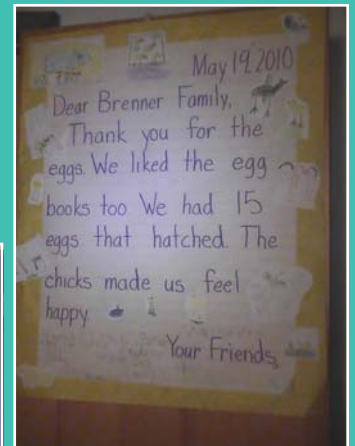 May 19, 2010
Dear Brenner Family,
Thank you for the
eggs. We liked the egg
books too We had 15
eggs that hatched. The
chicks made us feel
happy
Your Friends,